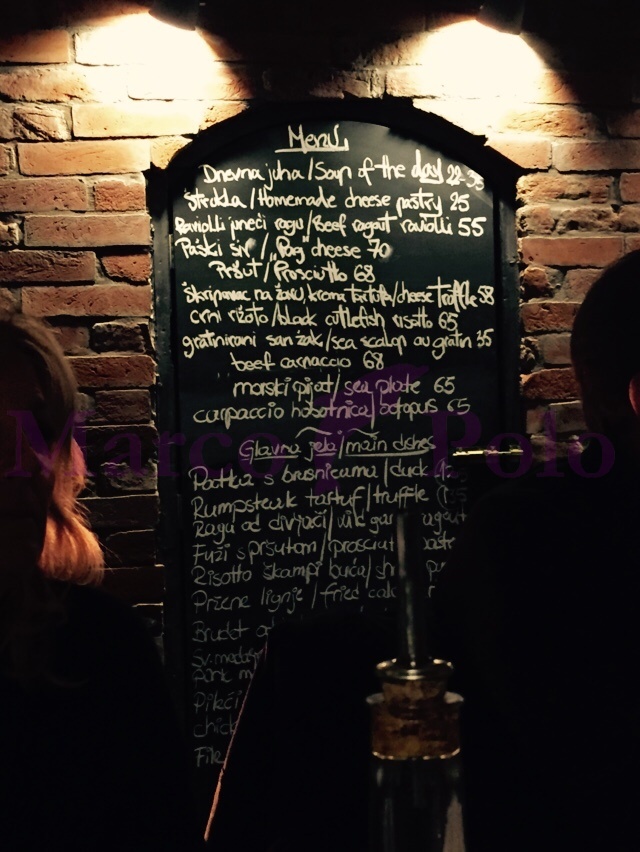 Menu
Dnevna juha/Soup of the day 22-35
Štrukla/Homemade cheese pastry 25
Raviolli juneći ragu/Beef ragout raviolli 55
Paški sir/"Pag" cheese 70
Pršut/Prosciutto 68
Škripavac na žaru, krema tartufa/cheese truffle 58
crni rižoto/black cuttlefish risotto 65
gratinirani san žak/sea scalop au gratin 35
beef carpaccio 68
morski pijat/sea plate 65
carpaccio hobotnica/octopus 65
Glavna jela/main dishes
Patka s brusnicama/duck
Rumpsteak tartuf/truffle
Ragu od divljači/wild
Fuži s pršutom/prosciut
Risotto škampi buća/sh
Pržene lignje/fried cala
Brudet
Sv.
Pork m
Pileći
chick
File
Marco Polo